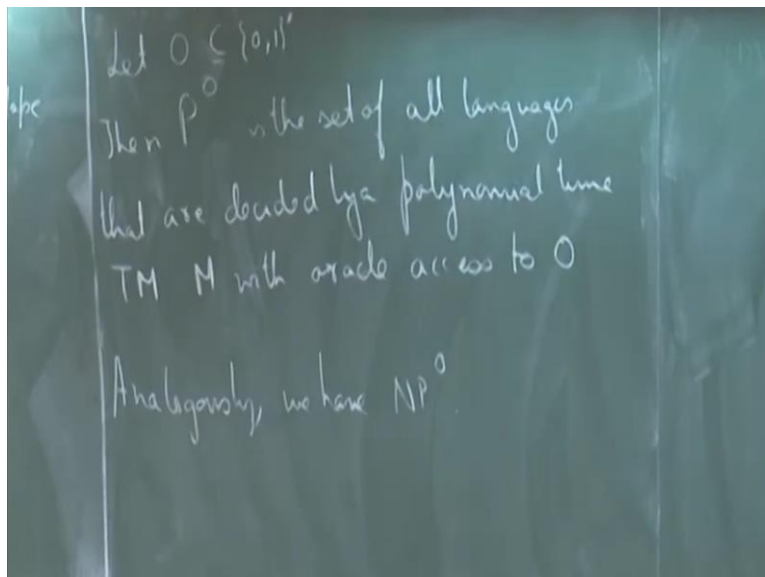 Let O ⊆ {0,1}*
Then P^O is the set of all languages
that are decided by a polynomial time
TM M with oracle access to O
Analogously, we have NP^O.